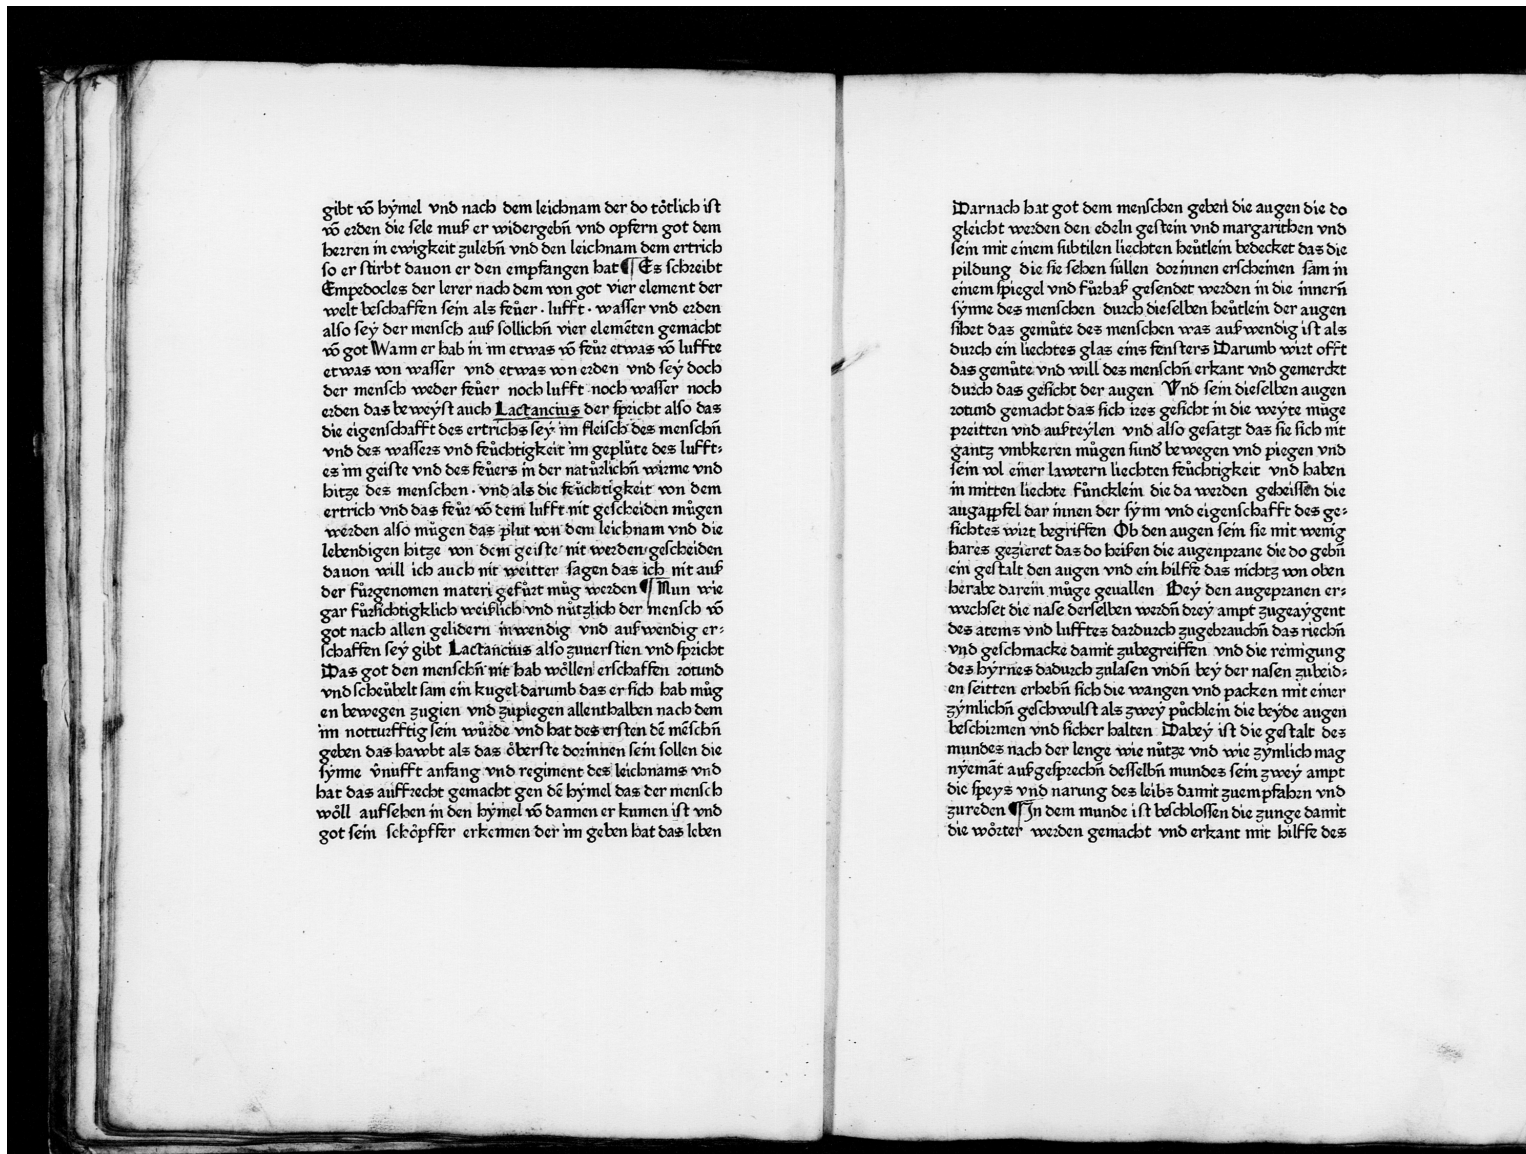 gibt vō hẏmel vnd nach dem leichnam der do tötlich ist
vō erden die sele muß er widergebñ vnd opfern got dem
herren in ewigkeit zulebñ vnd den leichnam dem ertrich
so er stirbt dauon er den empfangen hat ¶ Es schreibt
Empedocles der lerer nach dem von got vier element der
welt beschaffen sein als feůer · lufft · wasser vnd erden
also seẏ der mensch auß sollichñ vier elemēten gemacht
vō got Wann er hab in im etwas vō feůr etwas vō luffte
etwas von wasser vnd etwas von erden vnd seẏ doch
der mensch weder feůer noch lufft noch wasser noch
erden das beweẏst auch Lactancius der spricht also das
die eigenschafft des ertrichs seẏ im fleisch des menschñ
vnd des wassers vnd feůchtigkeit im geplůte des lufft⸗
es im geiste vnd des feůers in der natůrlichñ wirme vnd
hitze des menschen · vnd als die feůchtigkeit von dem
ertrich vnd das feůr vō dem lufft nit gescheiden můgen
werden also můgen das plut von dem leichnam vnd die
lebendigen hitze von dem geiste nit werden gescheiden
dauon will ich auch nit weitter sagen das ich nit auß
der fůrgenomen materi gefůrt můg werden ¶ Nun wie
gar fůrsichtigklich weißlich vnd nůtzlich der mensch vō
got nach allen gelidern inwendig vnd außwendig er⸗
schaffen seẏ gibt Lactancius also zuuerstien vnd spricht
Das got den menschñ nit hab wöllen erschaffen rotund
vnd scheůbelt sam ein kugel darumb das er sich hab můg
en bewegen zugien vnd zupiegen allenthalben nach dem
im notturfftig sein wůrde vnd hat des ersten dē mēschñ
geben das hawbt als das öberste dorinnen sein sollen die
sẏnne v̄nufft anfang vnd regiment des leichnams vnd
hat das auffrecht gemacht gen dē hẏmel das der mensch
wöll aufsehen in den hẏmel vō dannen er kumen ist vnd
got sein schöpffer erkennen der im geben hat das leben
Darnach hat got dem menschen geben die augen die do
gleicht werden den edeln gestein vnd margarithen vnd
sein mit einem subtilen liechten heůtlein bedecket das die
pildung die sie sehen sůllen dorinnen erscheinen sam in
einem spiegel vnd fůrbaß gesendet werden in die innerñ
sẏnne des menschen durch dieselben heůtlein der augen
sihet das gemůte des menschen was außwendig ist als
durch ein liechtes glas eins fensters Darumb wirt offt
das gemůte vnd will des menschñ erkant vnd gemerckt
durch das gesicht der augen Vnd sein dieselben augen
rotund gemacht das sich ires gesicht in die weẏte můge
preitten vnd außteẏlen vnd also gesatzt das sie sich nit
gantz vmbkeren můgen sund̄ bewegen vnd piegen vnd
sein vol einer lawtern liechten feůchtigkeit vnd haben
in mitten liechte fůncklein die da werden geheissen die
augappfel dar innen der sẏnn vnd eigenschafft des ge⸗
sichtes wirt begriffen Ob den augen sein sie mit wenig
hares gezieret das do heißen die augenprane die do gebñ
ein gestalt den augen vnd ein hilffe das nichtz von oben
herabe darein můge geuallen Beẏ den augepranen er⸗
wechset die nase derselben werdñ dreẏ ampt zugeaẏgent
des atems vnd lufftes dardurch zugebrauchñ das riechñ
vnd geschmacke damit zubegreiffen vnd die reinigung
des hẏrnes dadurch zulasen vndñ beẏ der nasen zubeid⸗
en seitten erhebñ sich die wangen vnd packen mit einer
zẏmlichñ geschwulst als zweẏ půchlein die beẏde augen
beschirmen vnd sicher halten Dabeẏ ist die gestalt des
mundes nach der lenge wie nůtze vnd wie zẏmlich mag
nẏemāt außgesprechñ desselbñ mundes sein zweẏ ampt
die speẏs vnd narung des leibs damit zuempfahrn vnd
zureden ¶ In dem munde ist beschlossen die zunge damit
die wörter werden gemacht vnd erkant mit hilffe des